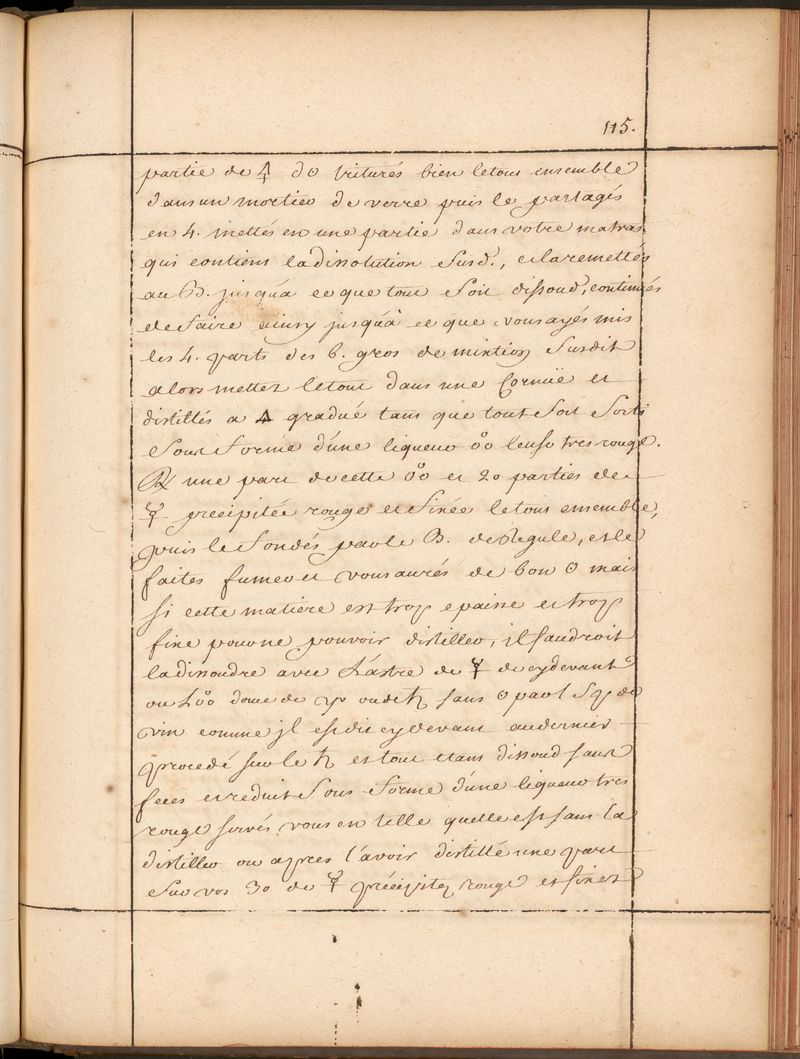 115.
partie de 🜍 d☉ triturés bien le tout ensemble
dans un mortier de verre puis le partagés
en 4. mettés en une partie dans votre matras
qui contient la dissolution Susd., et la remettés
au B. jusqu'a ce que tout Soit dissoud, continués
de faire ainsy jusqu'à ce que vous ayés mis
les 4. parts des 6. gros de mixtion Susdit
alors mettez le tout dans une Cornuë et
distillés a gradué tant que tout Soit Sorti
Sous Forme d'une liqueur tres rouge.
℞ une part de cette et 20 parties de
☿ precipitée rouge et fixée le tout ensemble,
puis le fondés par le B. de Regule, et le
faites fumer et vous aurés de bon ☉ mais
si cette matiere est trop epaisse et trop
fixe pour ne pouvoir distiller, il faudroit
la dissoudre avec L'astre de ☿ de cydevant
ou d'une de ou de ♄ sans ☉ par l' de
vin comme jl est dit cydevant au dernier
procedé sur le ♄ et tout etant dissoud sans
feces et reduit Sous Forme d'une liqueur tres
rouge servés vous en telle quelle est sans la
distiller ou apres l'avoir distillé une part
Sur vos 30 de ☿ précipitez rouge et fixez